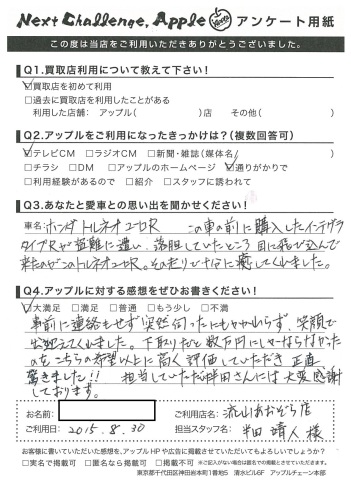 Next Challenge, Apple アンケート用紙
この度は当店をご利用いただきありがとうございました。
Q1.買取店利用について教えて下さい!
☑買取店を初めて利用
□過去に買取店を利用したことがある
利用した店舗: アップル( )店 その他( )
Q2.アップルをご利用になったきっかけは?(複数回答可)
☑テレビCM □ラジオCM □新聞・雑誌(媒体名 )
□チラシ □DM □アップルのホームページ ☑通りがかりで
□利用経験があるので □紹介 □スタッフに誘われて
Q3.あなたと愛車との思い出を聞かせください!
車名: ホンダ トルネオユーロR この車の前に購入したインテグラ
タイプRが盗難に遭い、落胆していたところ目に飛び込んで
来たのがこのトルネオユーロR。その走りで十分に癒してくれました。
Q4.アップルに対する感想をぜひお書きください!
☑大満足 □満足 □普通 □もう少し □不満
事前に連絡もせず突然伺ったにもかかわらず、笑顔で
出迎えてくれました。下取りだと数万円にしかならなかった
のをこちらの希望以上に高く評価していただき正直
驚きました!! 担当していただ半田さんには大変感謝
しております。
お名前:
ご利用店名: 流山おおぞら店
ご利用日: 2015.8.30
担当スタッフ名: 半田 靖人 様
お客様に書いていただいた感想を、アップルHPや広告に掲載させていただいてもよろしいでしょうか?
□実名で掲載可 □匿名なら掲載可 □掲載不可 ※ご記入がない場合は匿名での掲載とさせていただきます。
東京都千代田区神田岩本町1番地5 清水ビル6F アップルチェーン本部